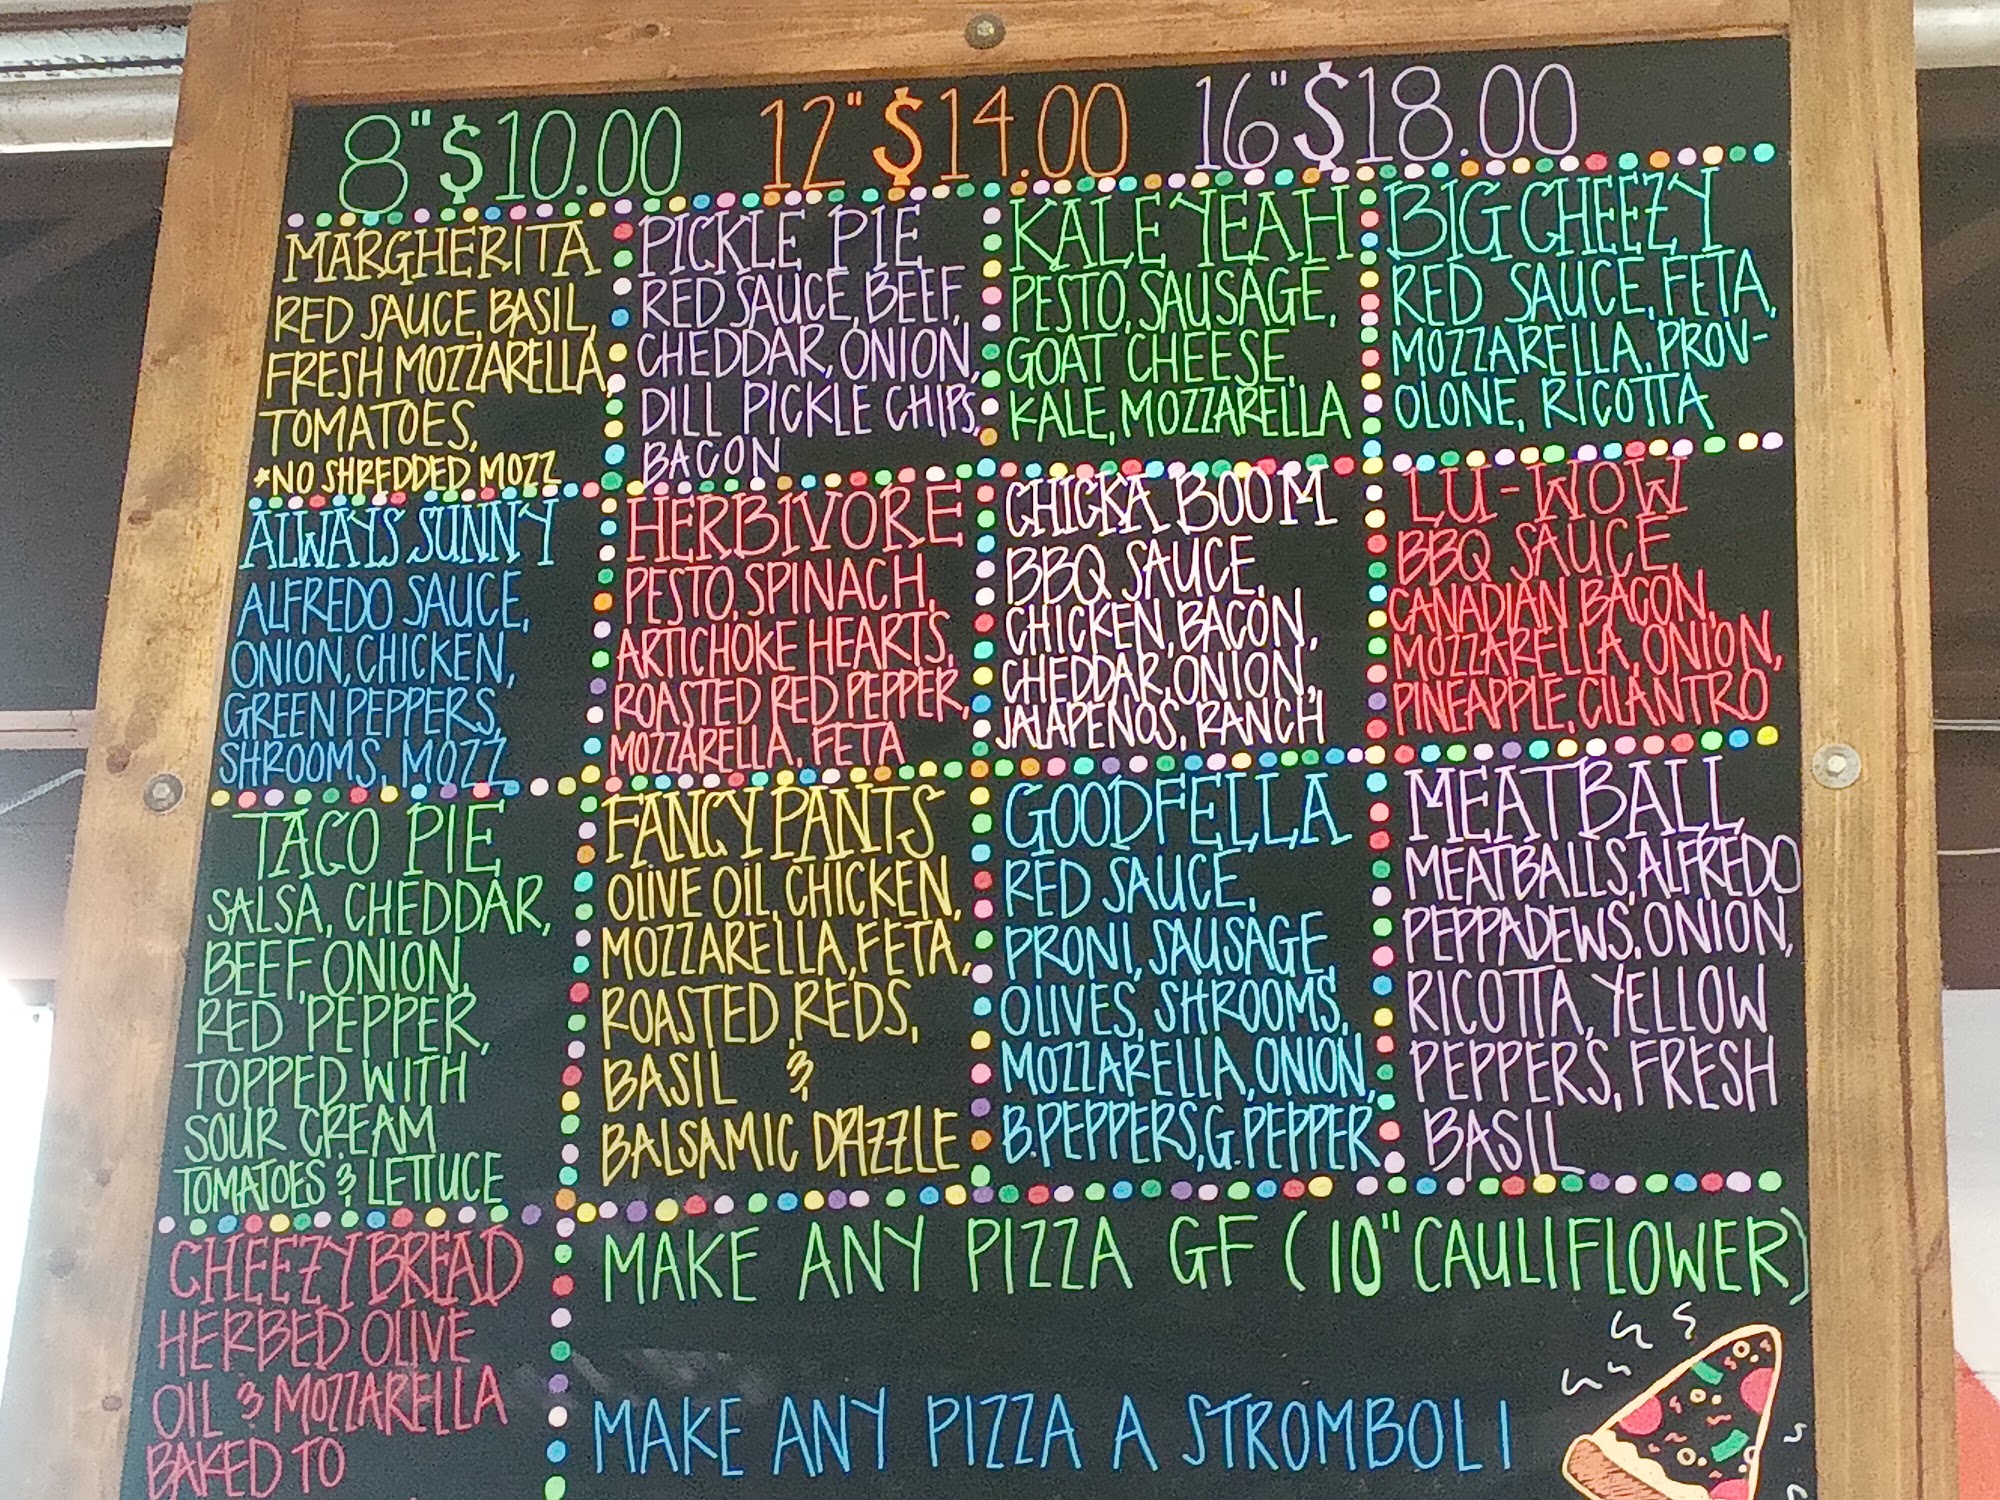 8" $10.00 12" $14.00 16" $18.00
MARGHERITA
RED SAUCE, BASIL,
FRESH MOZZARELLA,
TOMATOES,
*NO SHREDDED MOZZ
PICKLE PIE
RED SAUCE, BEEF,
CHEDDAR, ONION,
DILL PICKLE CHIPS,
BACON
KALE YEAH
PESTO, SAUSAGE,
GOAT CHEESE,
KALE, MOZZARELLA
BIG CHEEZY
RED SAUCE, FETA,
MOZZARELLA, PROV-
OLONE, RICOTTA
ALWAYS SUNNY
ALFREDO SAUCE,
ONION, CHICKEN,
GREEN PEPPERS,
SHROOMS, MOZZ
HERBIVORE
PESTO, SPINACH,
ARTICHOKE HEARTS,
ROASTED RED PEPPER,
MOZZARELLA, FETA
CHICKA BOOM
BBQ SAUCE,
CHICKEN, BACON,
CHEDDAR, ONION,
JALAPENOS, RANCH
LU-WOW
BBQ SAUCE
CANADIAN BACON,
MOZZARELLA, ONION,
PINEAPPLE, CILANTRO
TACO PIE
SALSA, CHEDDAR,
BEEF, ONION,
RED PEPPER,
TOPPED WITH
SOUR CREAM
TOMATOES & LETTUCE
FANCY PANTS
OLIVE OIL, CHICKEN,
MOZZARELLA, FETA,
ROASTED REDS,
BASIL &
BALSAMIC DRIZZLE
GOODFELLA
RED SAUCE,
PRONI, SAUSAGE,
OLIVES, SHROOMS,
MOZZARELLA, ONION,
B. PEPPERS, G. PEPPER
MEATBALL
MEATBALLS, ALFREDO
PEPPADEWS, ONION,
RICOTTA, YELLOW
PEPPERS, FRESH
BASIL
CHEEZY BREAD
HERBED OLIVE
OIL & MOZZARELLA
BAKED TO
MAKE ANY PIZZA GF (10" CAULIFLOWER)
MAKE ANY PIZZA A STROMBOLI